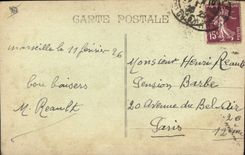 CARTE POSTALE
marseille le 11 février 26
bon baisers
M. Reault
Monsieur Henri Reault
Pension Barbe
20 Avenue du Bel-Air
20
Paris
12ème
15c